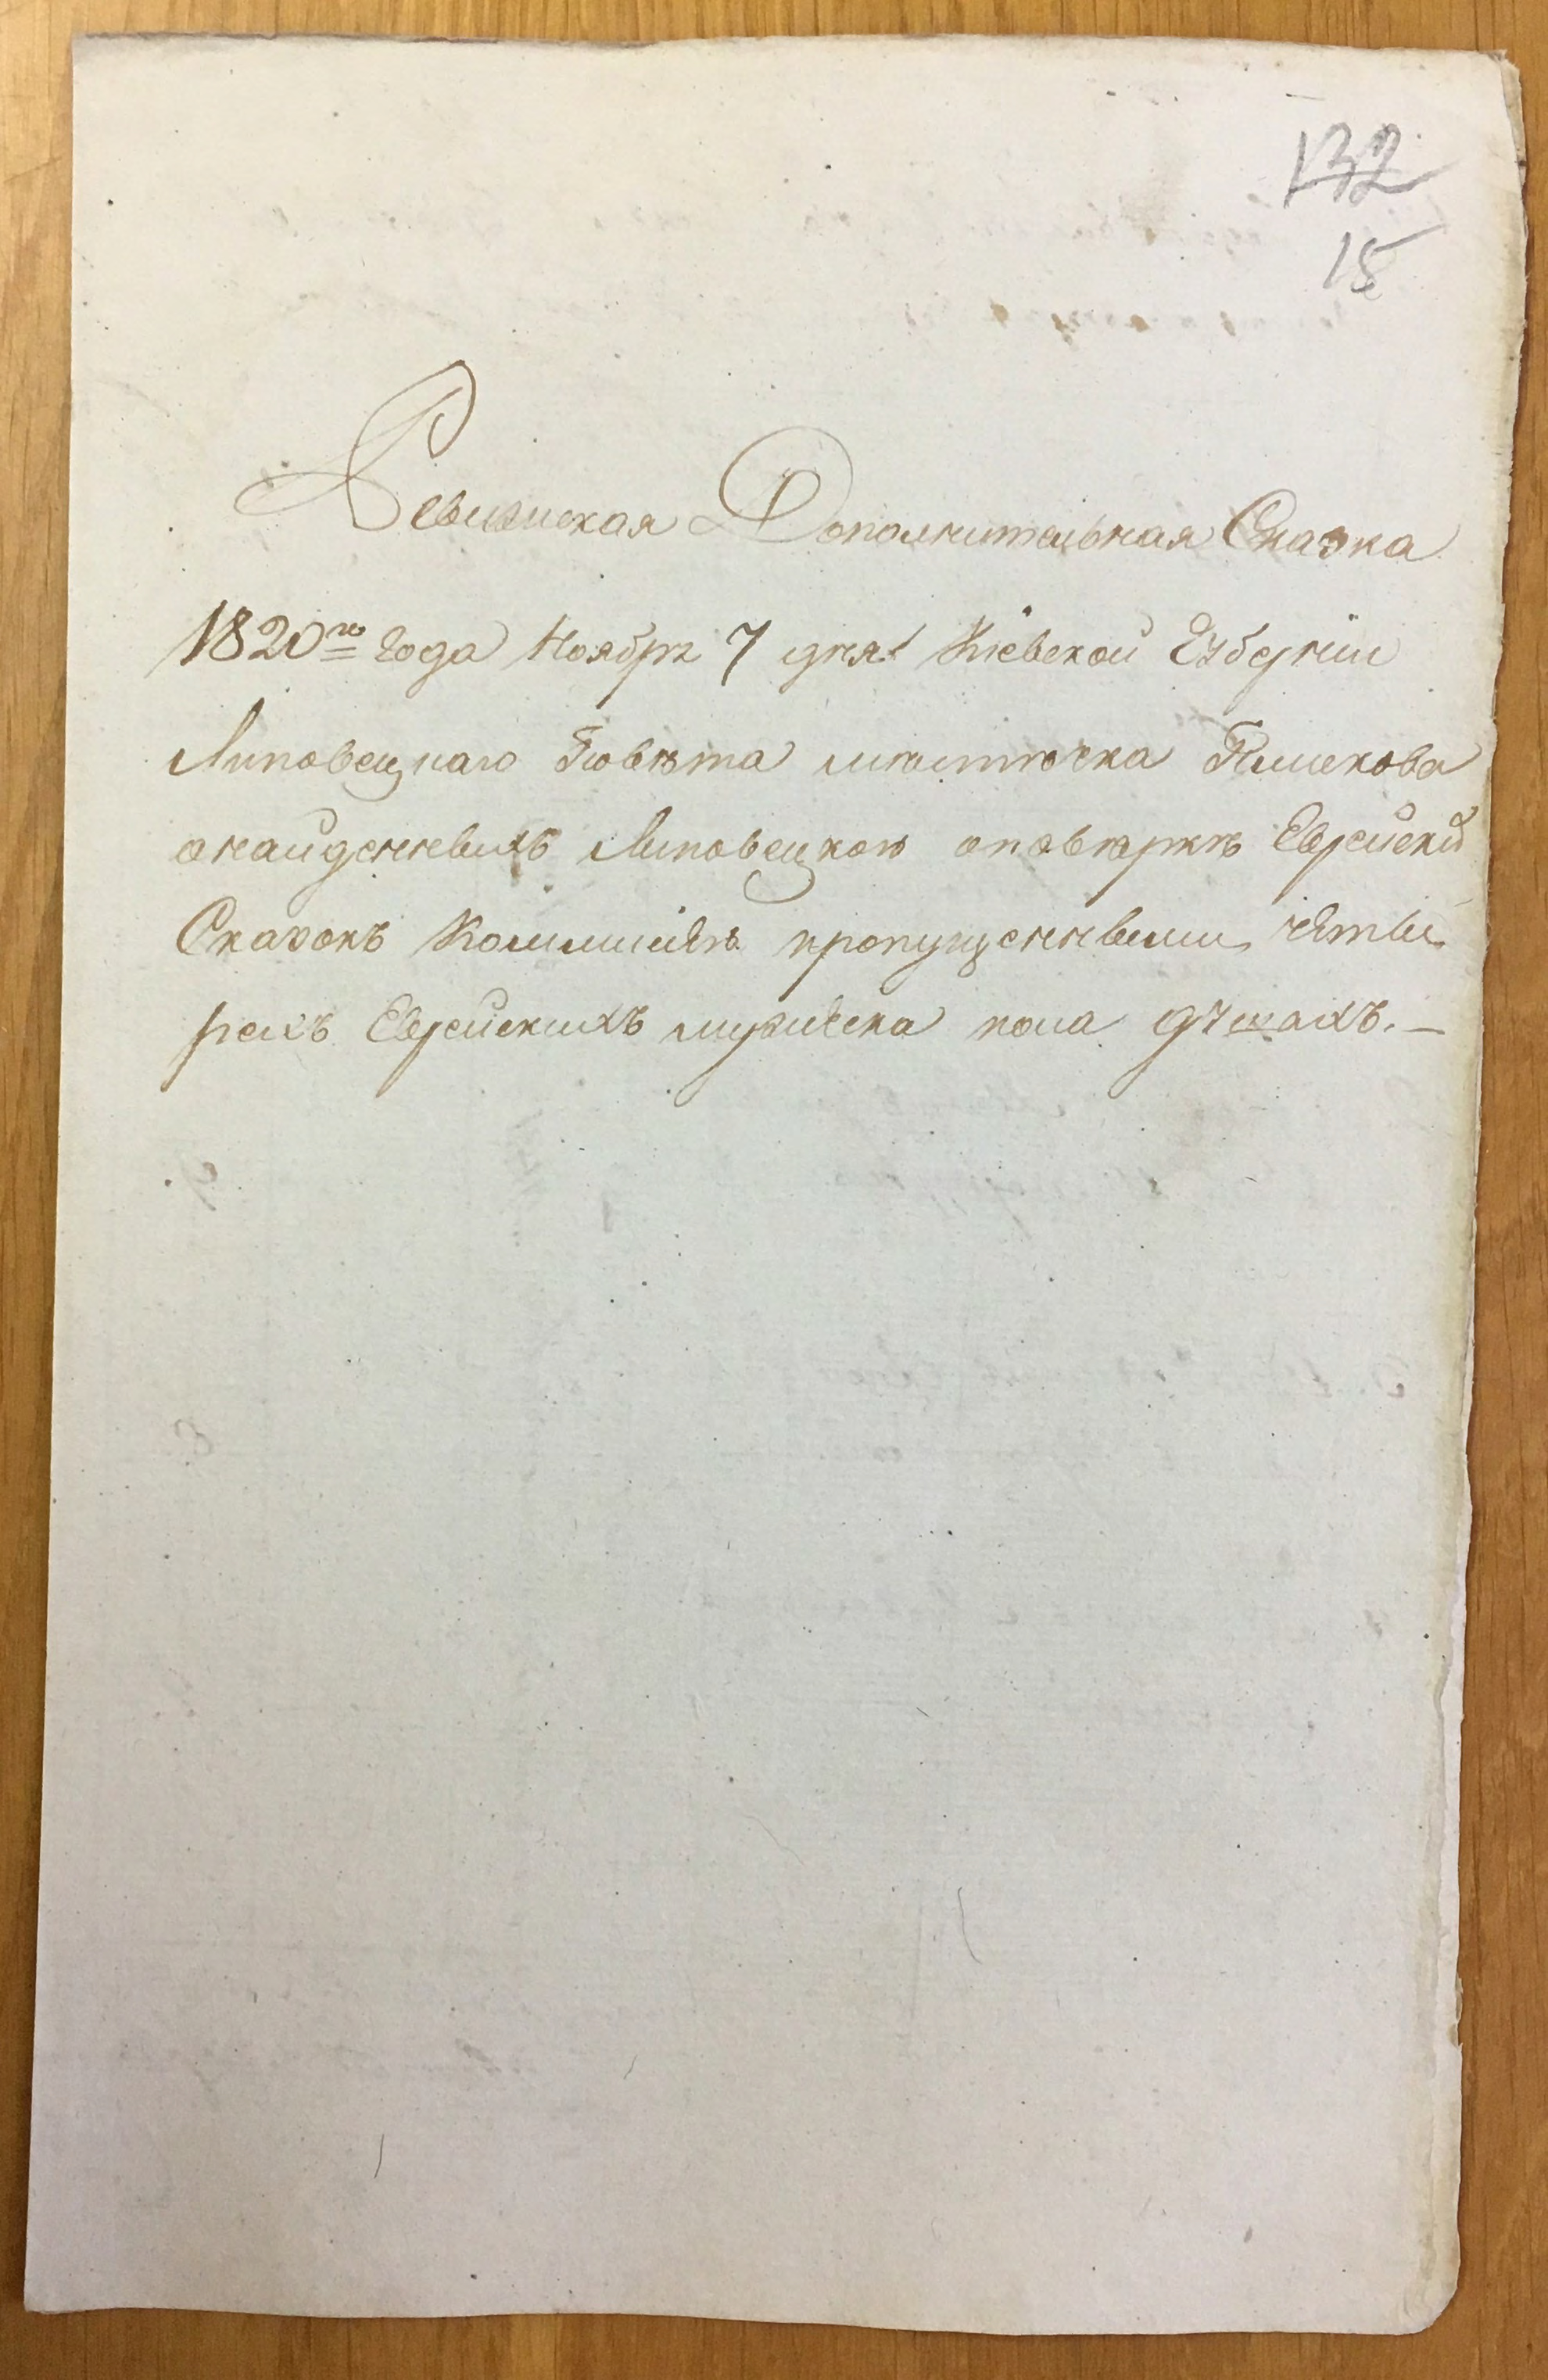 132
15
Ревизская Дополнительная Сказка
1820го года Ноября 7 дня Кіевской Губерніи
Липовецкаго Повѣта мѣстѣчка Пискова
онайденныхъ Липовецкою оповѣркѣ Еврейски
Сказокъ Коммисіею пропущенными четы
рехъ Еврейскихъ мужеска пола душахъ.—